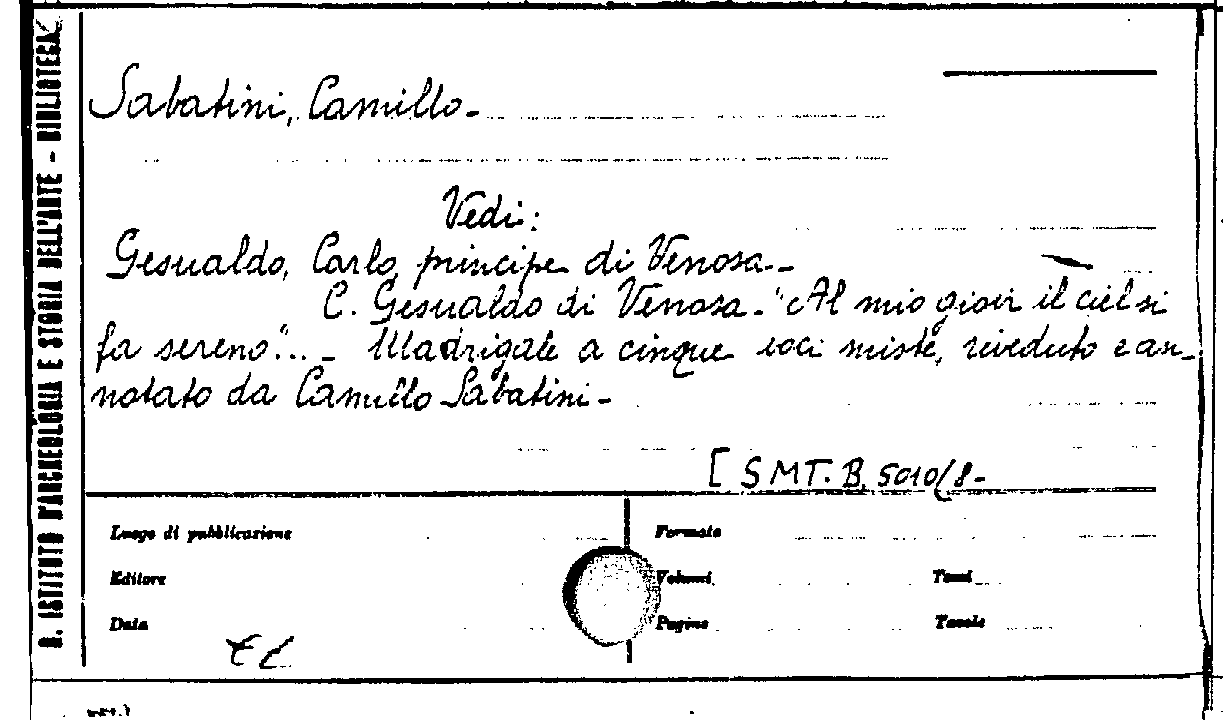 R. ISTITUTO D'ARCHEOLOGIA E STORIA DELL'ARTE - BIBLIOTECA
Sabatini, Camillo -
Vedi:
Gesualdo, Carlo, principe di Venosa. -
C. Gesualdo di Venosa. "Al mio gioir il ciel si
fa sereno"... - Madrigale a cinque voci miste, riveduto e an-
notato da Camillo Sabatini -
[SMT. B. 5010/8 -
Luogo di pubblicazione
Formato
Editore
Volumi
Tomi
Data
Pagine
Tavole